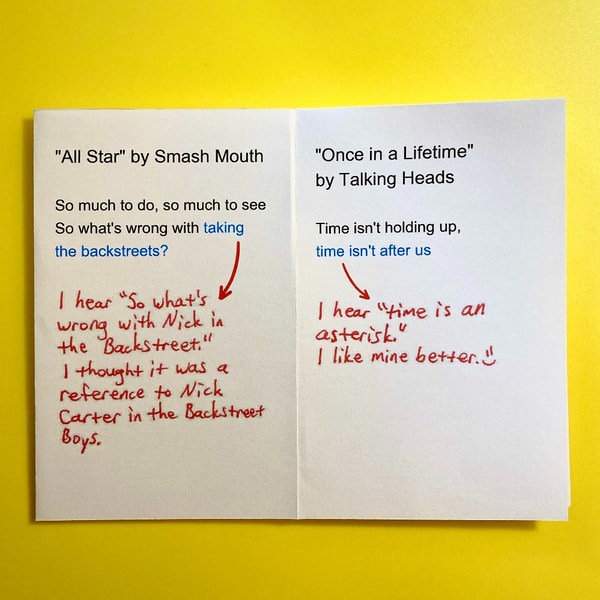 "All Star" by Smash Mouth
So much to do, so much to see
So what's wrong with taking
the backstreets?
I hear "So what's
wrong with Nick in
the Backstreet."
I thought it was a
reference to Nick
Carter in the Backstreet
Boys.
"Once in a Lifetime"
by Talking Heads
Time isn't holding up,
time isn't after us
I hear "time is an
asterisk."
I like mine better.